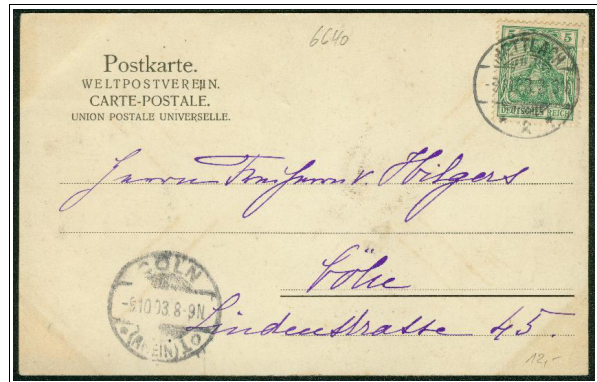 6640
Postkarte.
WELTPOSTVEREIN.
CARTE-POSTALE.
UNION POSTALE UNIVERSELLE.
5 5
METTLACH
DEUTSCHES REICH
* 2 *
Herrn Freiherrn v. Hilgers
Cöln
Lindenstrasse 45.
CÖLN
-9.10.03. 8-9N
* (RHEIN) OT
12,-